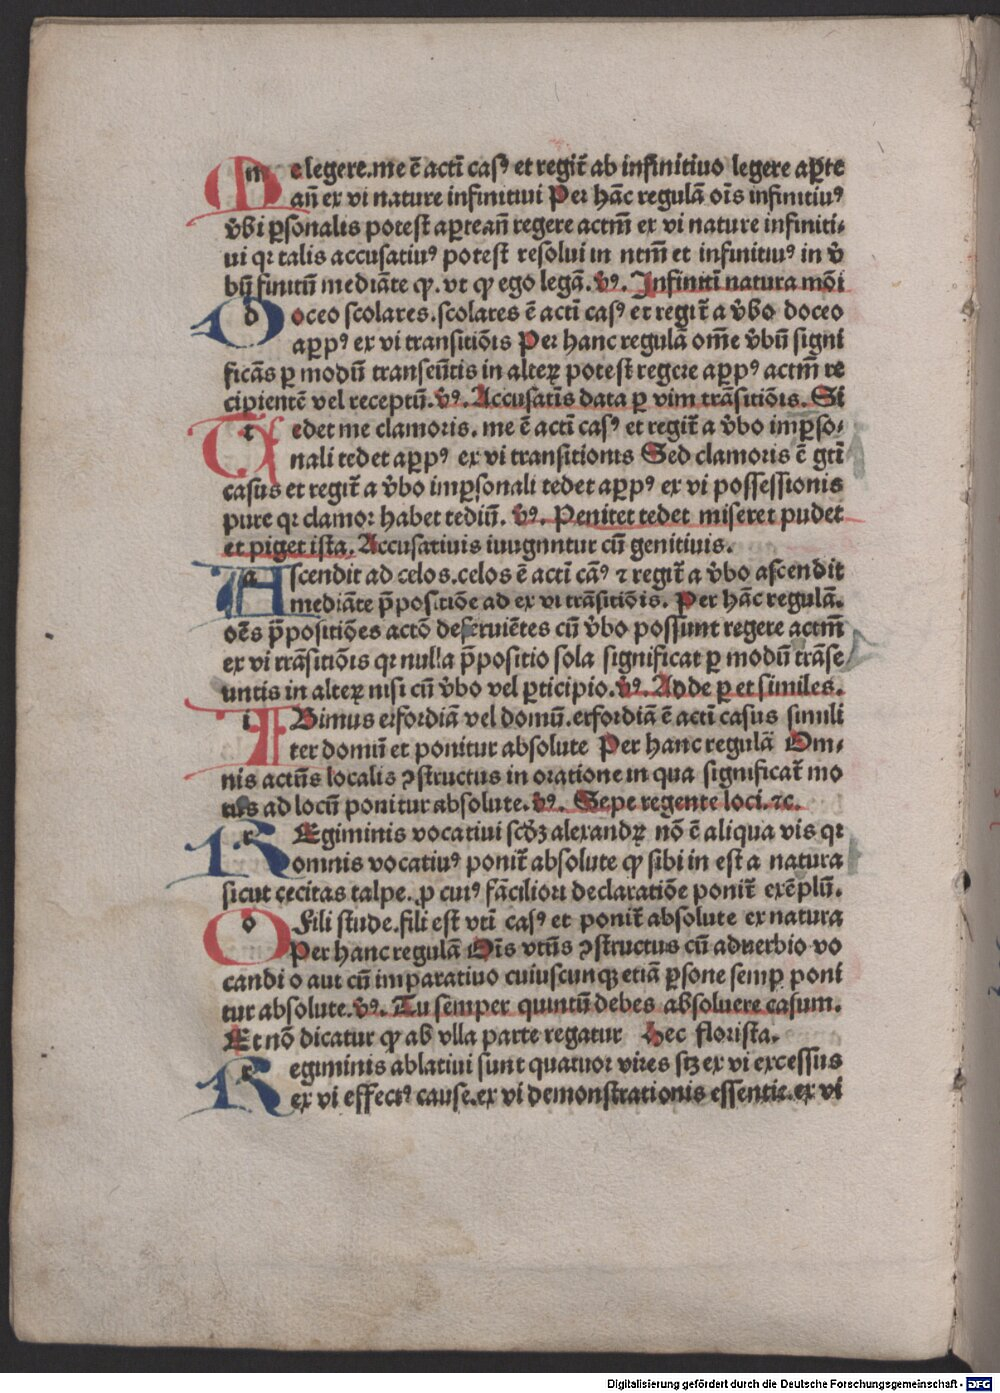 Me legere.me ē acti casꝰ et regit̄ ab infinitiuo legere a ꝑte
an̄ ex vi nature infinitiui Per hāc regulā oīs infinitiuꝰ
v̄bi ꝑsonalis potest a ꝑte an̄ regere actm̄ ex vi nature infiniti⸗
ui qꝛ talis accusatiuꝰ potest resolui in ntm̄ et infinitiuꝰ in v̄
bū finitū mediāte ꝙ. vt ꝙ ego legā. v̄ꝰ. Infiniti natura mōi
Doceo scolares.scolares ē acti casꝰ et regit̄ a v̄bo doceo
a ꝑ pꝰ ex vi transitiōis Per hanc regulā om̄e v̄bū signi
ficās ꝑ modū transeūtis in alteꝝ potest regere a ꝑ pꝰ actm̄ re
cipientē vel receptū. v̄ꝰ. Accusatis data ꝑ vim trāsitiōis. Si
Tedet me clamoris. me ē acti casꝰ et regit̄ a v̄bo imꝑso⸗
nali tedet a ꝑ pꝰ ex vi transitionis Sed clamoris ē gti
casus et regit̄ a v̄bo imꝑsonali tedet a ꝑ pꝰ ex vi possessionis
pure qꝛ clamor habet tediū. v̄ꝰ. Penitet tedet miseret pudet
et piget ista. Accusatiuis iunguntur cū genitiuis.
Ascendit ad celos.celos ē acti cāꝰ ⁊ regit̄ a v̄bo ascendit
mediāte p̄positiōe ad ex vi trāsitiōis. Per hāc regulā.
oēs p̄positiōes actō deseruiētes cū v̄bo possunt regere actm̄
ex vi trāsitiōis qꝛ nulla p̄positio sola significat ꝑ modū trāse
untis in alteꝝ nisi cū v̄bo vel ꝑticipio. v̄ꝰ. Adde ꝑ et similes.
IBimus erfordiā vel domū.erfordiā ē acti casus simili
ter domū et ponitur absolute Per hanc regulā Om⸗
nis actūs localis ꝯstructus in oratione in qua significat̄ mo
tus ad locū ponitur absolute. v̄ꝰ. Sepe regente loci. ⁊c.
REgiminis vocatiui scd̄ꝫ alexandꝝ nō ē aliqua vis qꝛ
omnis vocatiuꝰ ponit̄ absolute ꝙ sibi in est a natura
sicut cecitas talpe. ꝓ cuiꝰ fāciliori declaratiōe ponit̄ exēplū.
O Fili stude.fili est vti casꝰ et ponit̄ absolute ex natura
Per hanc regulā Oīs vtūs ꝯstructus cū aduerbio vo
candi o aut cū imparatiuo cuiuscunqꝫ etiā ꝑsone semꝑ poni
tur absolute. v̄ꝰ. Tu semper quintū debes absoluere casum.
Et nō dicatur ꝙ ab vlla parte regatur Hec florista.
Regiminis ablatiui sunt quatuor vires sꝫ ex vi excessus
ex vi effectꝰ cause.ex vi demonstrationis essentie.ex vi
Digitalisierung gefördert durch die Deutsche Forschungsgemeinschaft - DFG